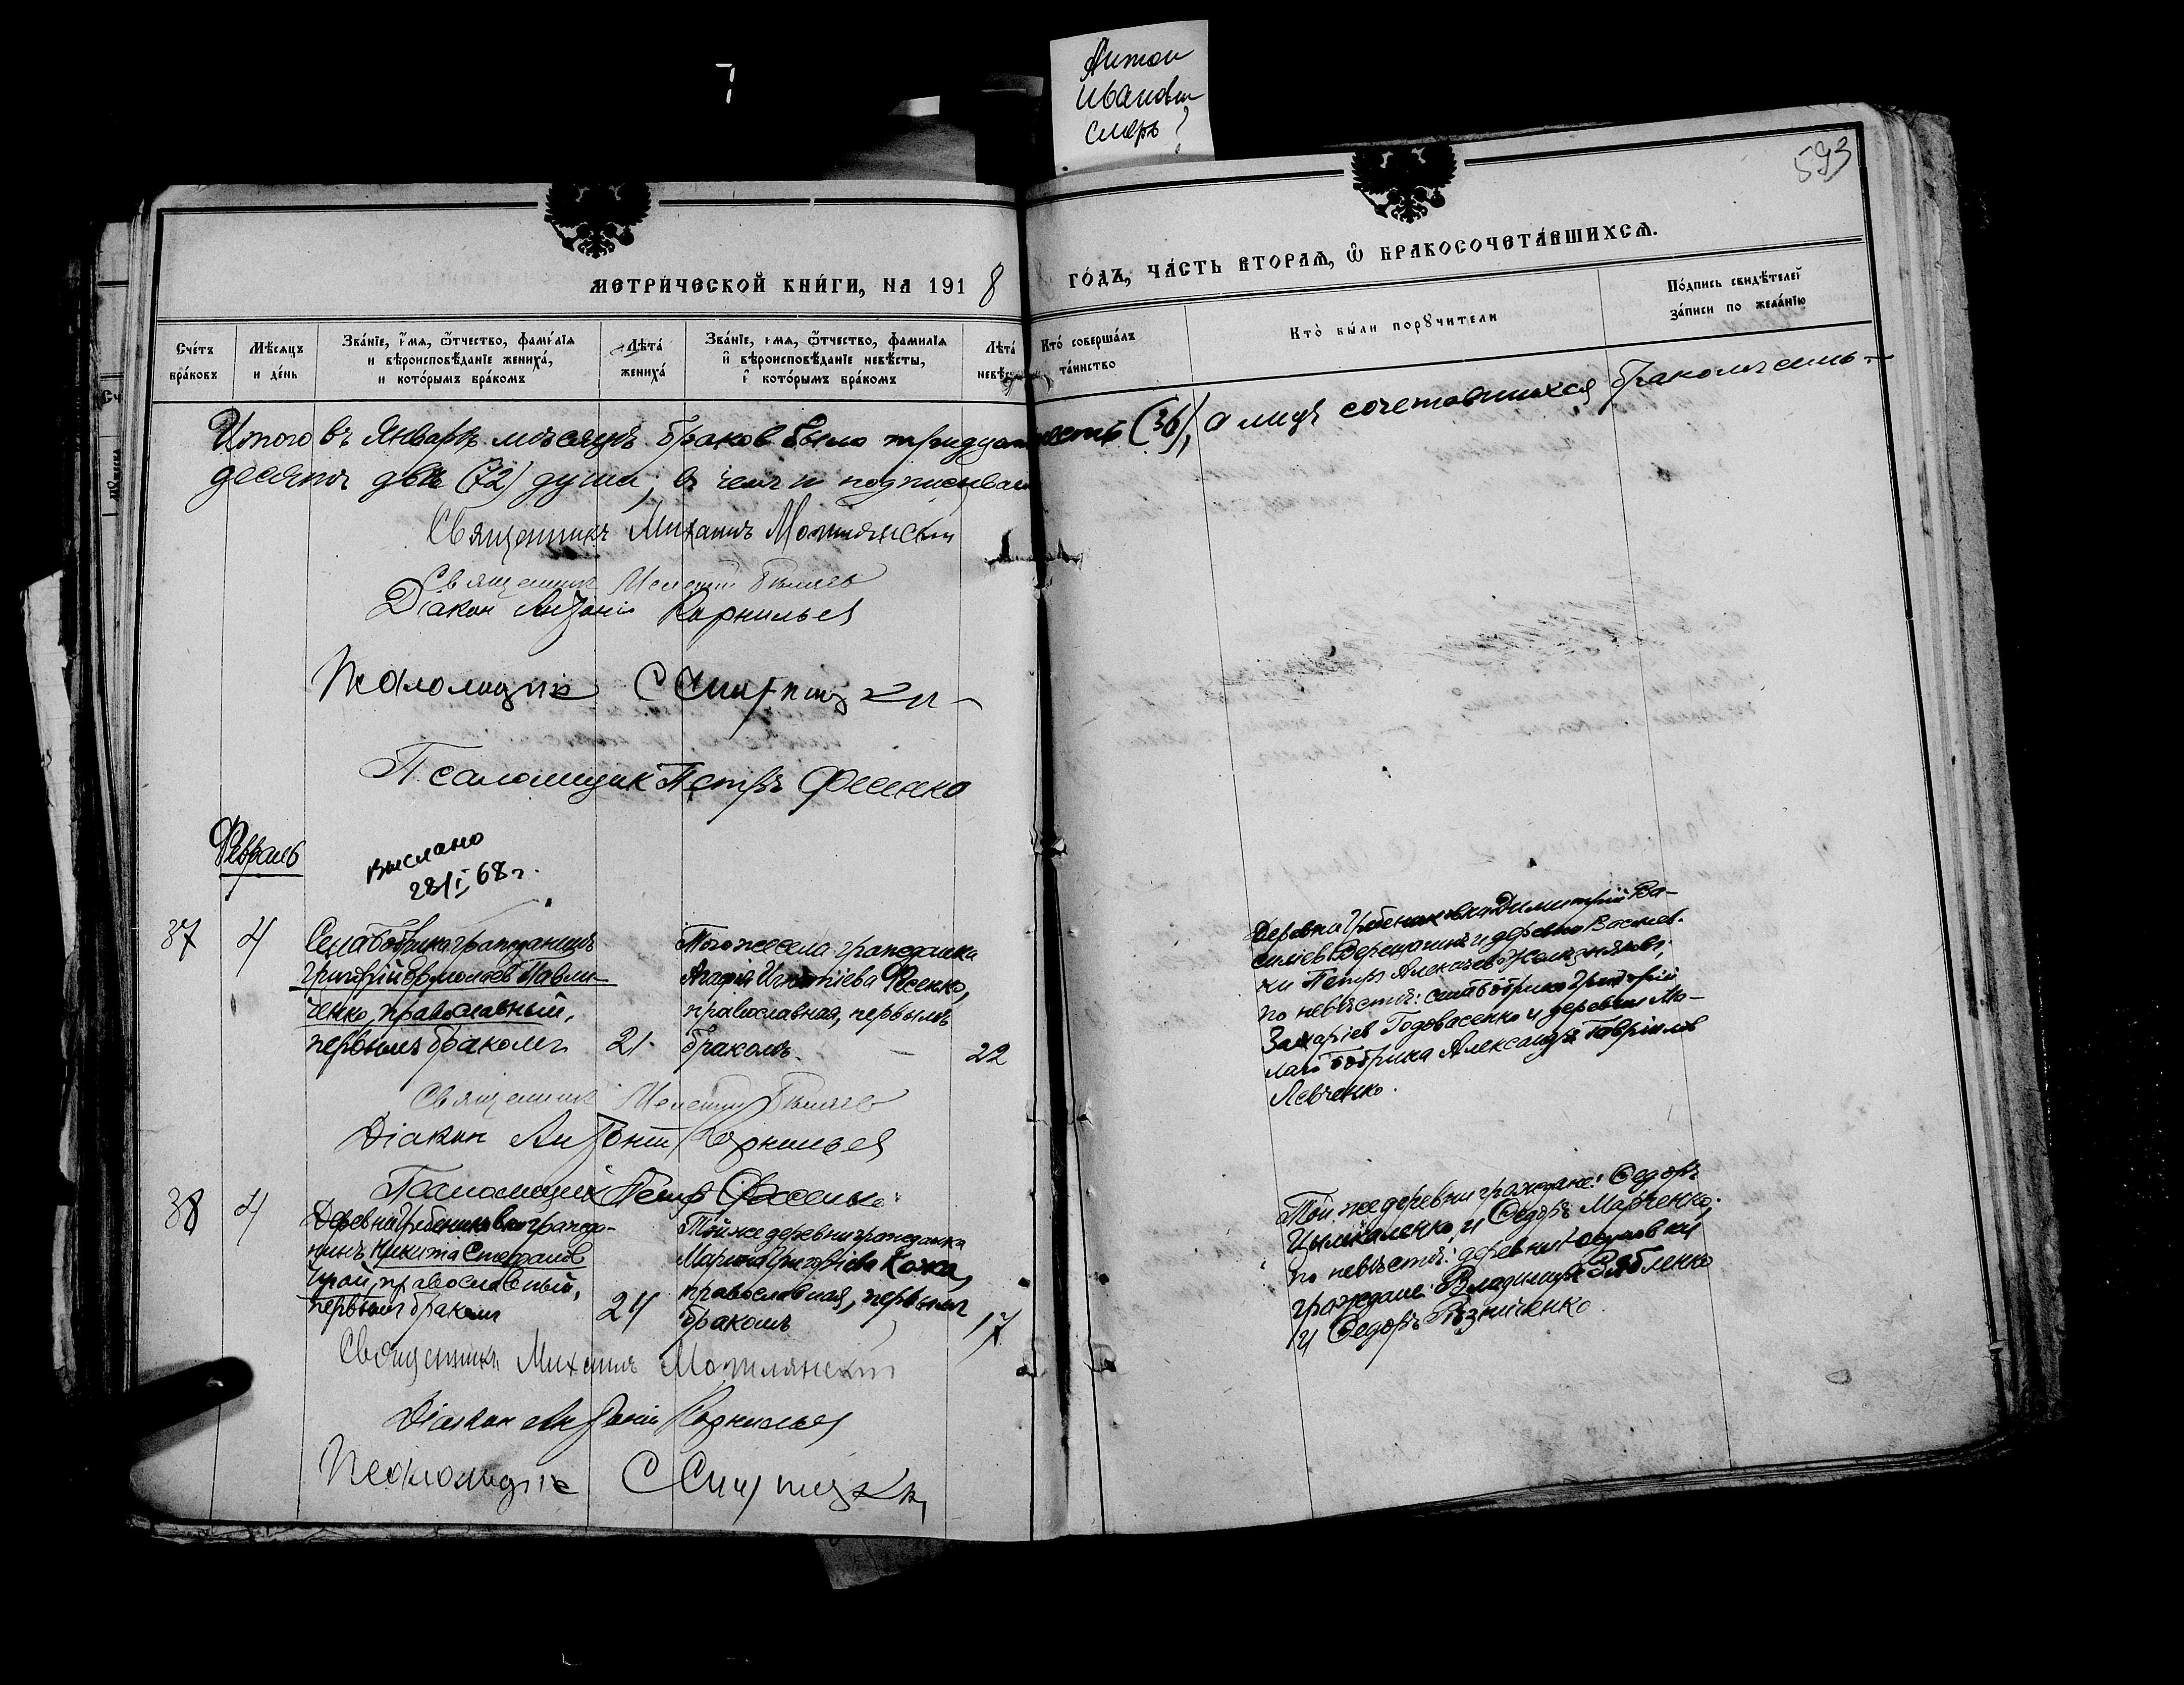 Антон
Иванович
смерть?
593
МЕТРИЧЕСКОЙ КНИГИ, НА 1918
ГОДЪ, ЧАСТЬ ВТОРАЯ, Ѿ БРАКОСОЧЕТАВШИХСЯ.
Счетъ браковъ
Мѣсяцъ и день
Званіе, имя, ѿчество, фамилія и вѣроисповѣданіе жениха, и которымъ бракомъ
Лѣта жениха
Званіе, имя, ѿчество, фамилія и вѣроисповѣданіе невѣсты, и которымъ бракомъ
Лѣта невѣс
Кто совершалъ таинство
Кто были поручители
Подпись свидѣтелей записи по желанію
Итого въ Январѣ мѣсяцѣ браков было тридцать шесть (36), а лицъ сочетавшихся бракомъ семь-
десятъ двѣ (72) души, въ чемъ и подписываем
Священникъ Михаилъ
Священник Мелетий
Діакон Антоній Корнильев
Псаломщик С
Псаломщик Петръ Фесенко
Февраль
Выслано
28/I 68 г.
37
4
Села Бобрика гражданинъ
Григорій Ермолаев Павли-
ченко, православный,
первымъ бракомъ
21
Того же села гражданка
Агафія Игнатіева Фесенко,
православная, первымъ
бракомъ
22
Деревни Гребениковка Димитрій Ва-
сильев Верещагинъ и деревни Васильев-
ки Петръ Алексѣевъ
по невѣстѣ: села Бобрика Григорій
Захаріев Годовасенко и деревни Ма-
лаго Бобрика Александръ Гавріиловъ
Левченко.
Священник Мелетий
Діакон Антоній Корнильев
Псаломщик Петръ Фесенко
38
4
Деревни Гребениковки гражда-
нинъ Никита Стефанов
православный,
первымъ бракомъ
24
Той же деревни гражданка
Марія Григоріева Кожа,
православная, первымъ
бракомъ
17
Той же деревни граждане: Федоръ
Цымбаленко и Федоръ Марченко;
по невѣстѣ: деревни
граждане: Владимиръ Зябленко
и Федоръ Рѣзниченко.
Священникъ Михаилъ
Діакон Антоній Корнильев
Псаломщик С